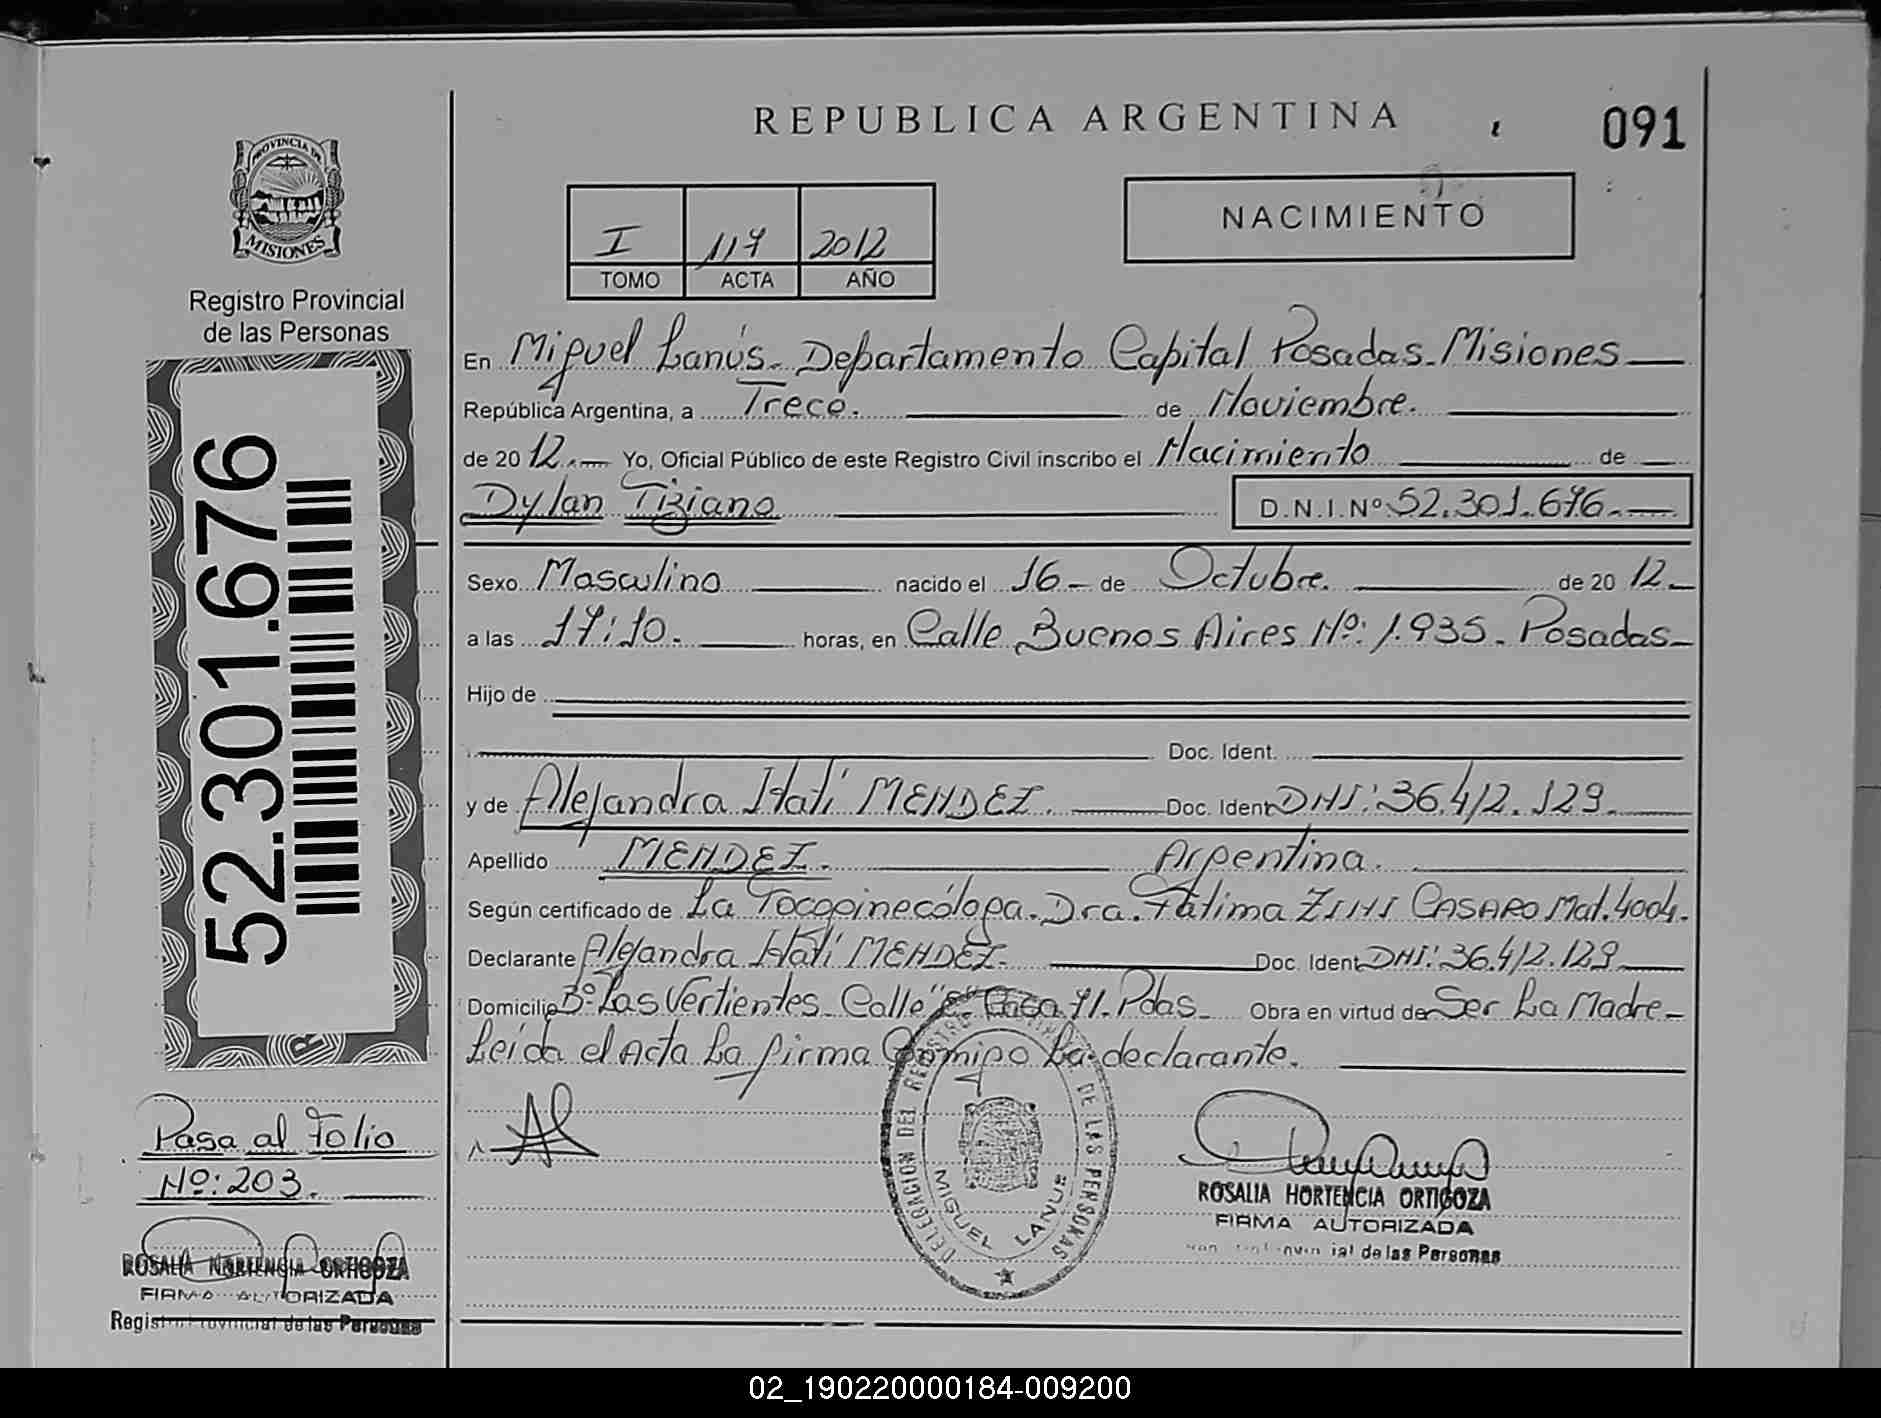 REPUBLICA ARGENTINA
091
PROVINCIA DE
MISIONES
Registro Provincial
de las Personas
I 117 2012
TOMO ACTA AÑO
NACIMIENTO
En Miguel Lanús. Departamento Capital Posadas. Misiones
República Argentina, a Trece. de Noviembre.
de 2012. Yo, Oficial Público de este Registro Civil inscribo el Nacimiento de
Dylan Tiziano D.N.I.Nº 52.301.676.
Sexo Masculino nacido el 16 de Octubre. de 2012.
a las 17:10. horas, en Calle Buenos Aires Nº: 1.935. Posadas
Hijo de
Doc. Ident.
y de Alejandra Itatí MENDEZ. Doc. Ident DNI: 36.412.129.
Apellido MENDEZ. Argentina.
Según certificado de La Tocoginecóloga. Dra. Fátima ZINI CASARO Mat. 4004.
Declarante Alejandra Itatí MENDEZ. Doc. Ident DNI: 36.412.129
Domicilio Bº Las Vertientes Calle Casa 71. Pdas. Obra en virtud de Ser La Madre
Leída el Acta La firma Conmigo La declarante.
52.301.676
Pasa al Folio
Nº: 203.
ROSALIA HORTENCIA ORTIGOZA
FIRMA AUTORIZADA
Registro Provincial de las Personas
DELEGACION DEL REGISTRO DE LAS PERSONAS
MIGUEL LANUS
ROSALIA HORTENCIA ORTIGOZA
FIRMA AUTORIZADA
de las Personas
02_190220000184-009200